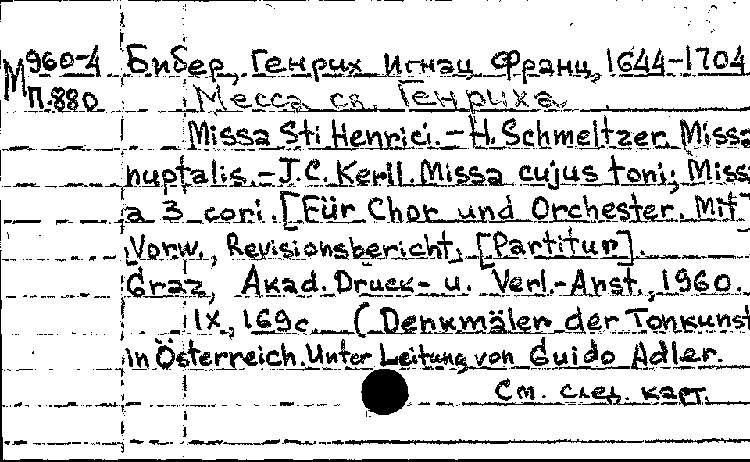 М 960-4 Бибер, Генрих Игнац Франц, 1644-1704
П.880 Месса св. Генриха
Missa Sti Henrici. – H. Schmeltzer. Missa
nuptalis. – J.C. Kerll. Missa cujus toni; Missa
a 3 cori. [Für Chor und Orchester. Mit
Vorw., Revisionsbericht, [Partitur].
Graz, Akad. Druck- u. Verl.-Anst., 1960.
IX, 169 c. (Denkmäler der Tonkunst
in Österreich. Unter Leitung von Guido Adler.
См. след. карт.